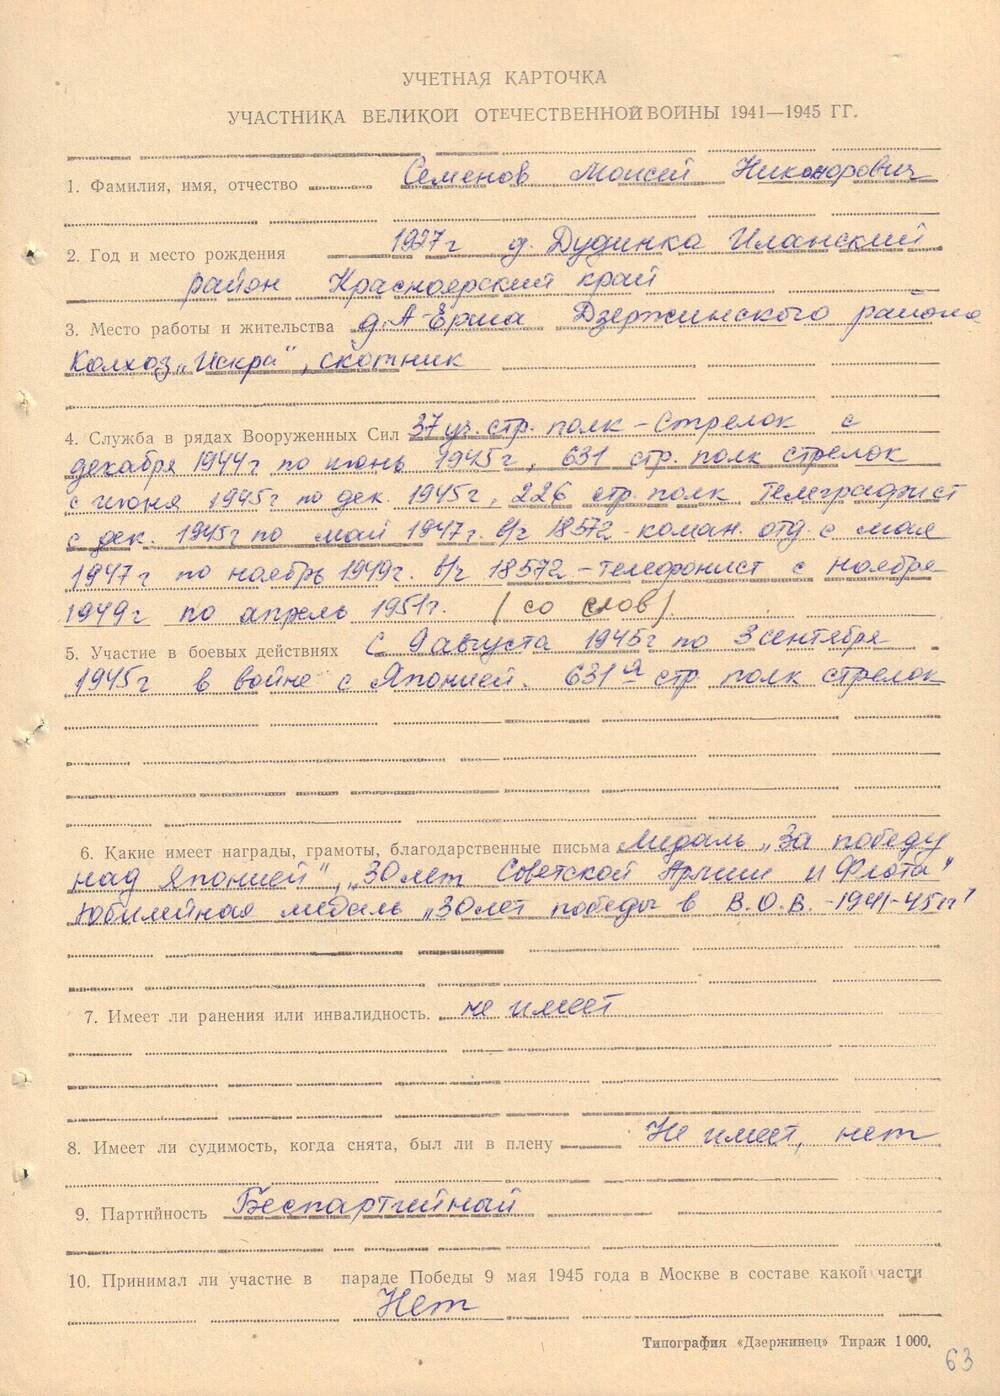 УЧЕТНАЯ КАРТОЧКА
УЧАСТНИКА ВЕЛИКОЙ ОТЕЧЕСТВЕННОЙ ВОЙНЫ 1941—1945 ГГ.
1. Фамилия, имя, отчество Семенов Моисей Никонорович
2. Год и место рождения 1927 г д. Дудинка Иланский
район Красноярский край
3. Место работы и жительства д. А-Ёрша Дзержинского района
Колхоз „Искра", скотник
4. Служба в рядах Вооруженных Сил 37 уч. стр. полк - Стрелок с
декабря 1944 г по июнь 1945 г, 631 стр. полк стрелок
с июня 1945 г по дек. 1945 г, 226 стр. полк Телеграфист
с дек. 1945 г по май 1947 г. В/ч 18572 - коман. отд. с мая
1947 г по ноябрь 1949 г. В/ч 18572 - телефонист с ноября
1949 г по апрель 1951 г. (со слов).
5. Участие в боевых действиях С 9 августа 1945 г по 3 сентября
1945 г в войне с Японией. 631й стр полк стрелок
6. Какие имеет награды, грамоты, благодарственные письма Медаль „За победу
над Японией", „30 лет Советской Армии и Флота"
Юбилейная медаль „30 лет победы в В.О.В. - 1941-45 гг"
7. Имеет ли ранения или инвалидность. не имеет
8. Имеет ли судимость, когда снята, был ли в плену Не имеет, нет
9. Партийность Беспартийный
10. Принимал ли участие в параде Победы 9 мая 1945 года в Москве в составе какой части
Нет
Типография «Дзержинец» Тираж 1 000.
63